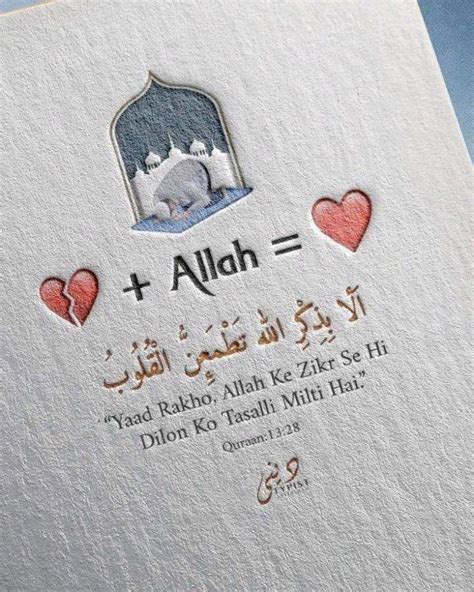 + Allah =
اَلَا بِذِكْرِ اللّٰه تَطْمَئِنُّ الْقُلُوبُ
“Yaad Rakho, Allah Ke Zikr Se Hi
Dilon Ko Tasalli Milti Hai.”
Quraan:13:28
دینی
TYPIST